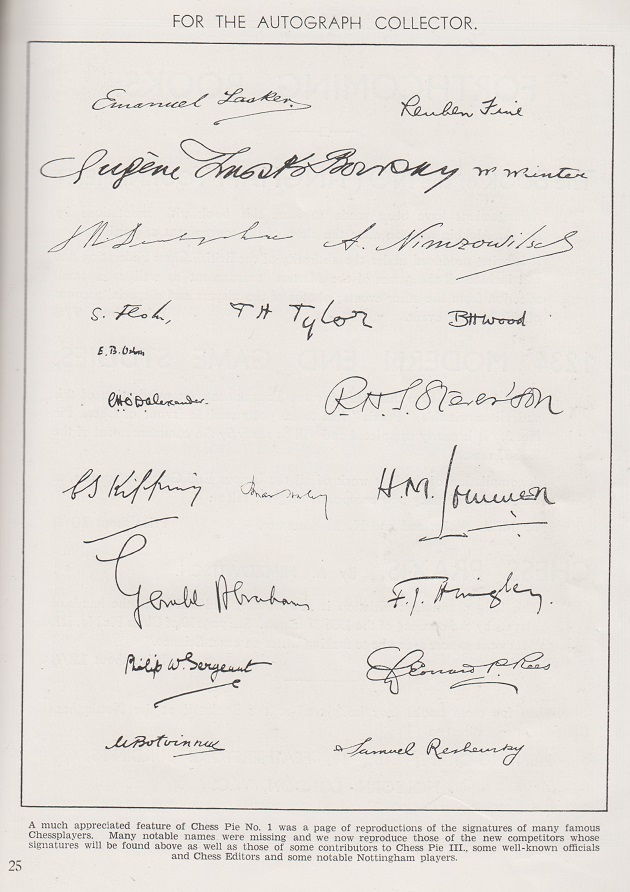 FOR THE AUTOGRAPH COLLECTOR.
Emanuel Lasker
Reuben Fine
Eugène Znosko Borovsky
W Winter
A. Nimzowitsch
S. Flohr,
T H Tylor
BHWood
E. B. Osborn
C.H.O'D. Alexander.
R.H.S. Stevenson
CS Kipping
H.M. Lommer
Gerald Abrahams
F.J.
Philip W. Sergeant
Leonard P. Rees
M Botvinnik
Samuel Reshevsky
A much appreciated feature of Chess Pie No. 1 was a page of reproductions of the signatures of many famous
Chessplayers. Many notable names were missing and we now reproduce those of the new competitors whose
signatures will be found above as well as those of some contributors to Chess Pie III., some well-known officials
and Chess Editors and some notable Nottingham players.
25